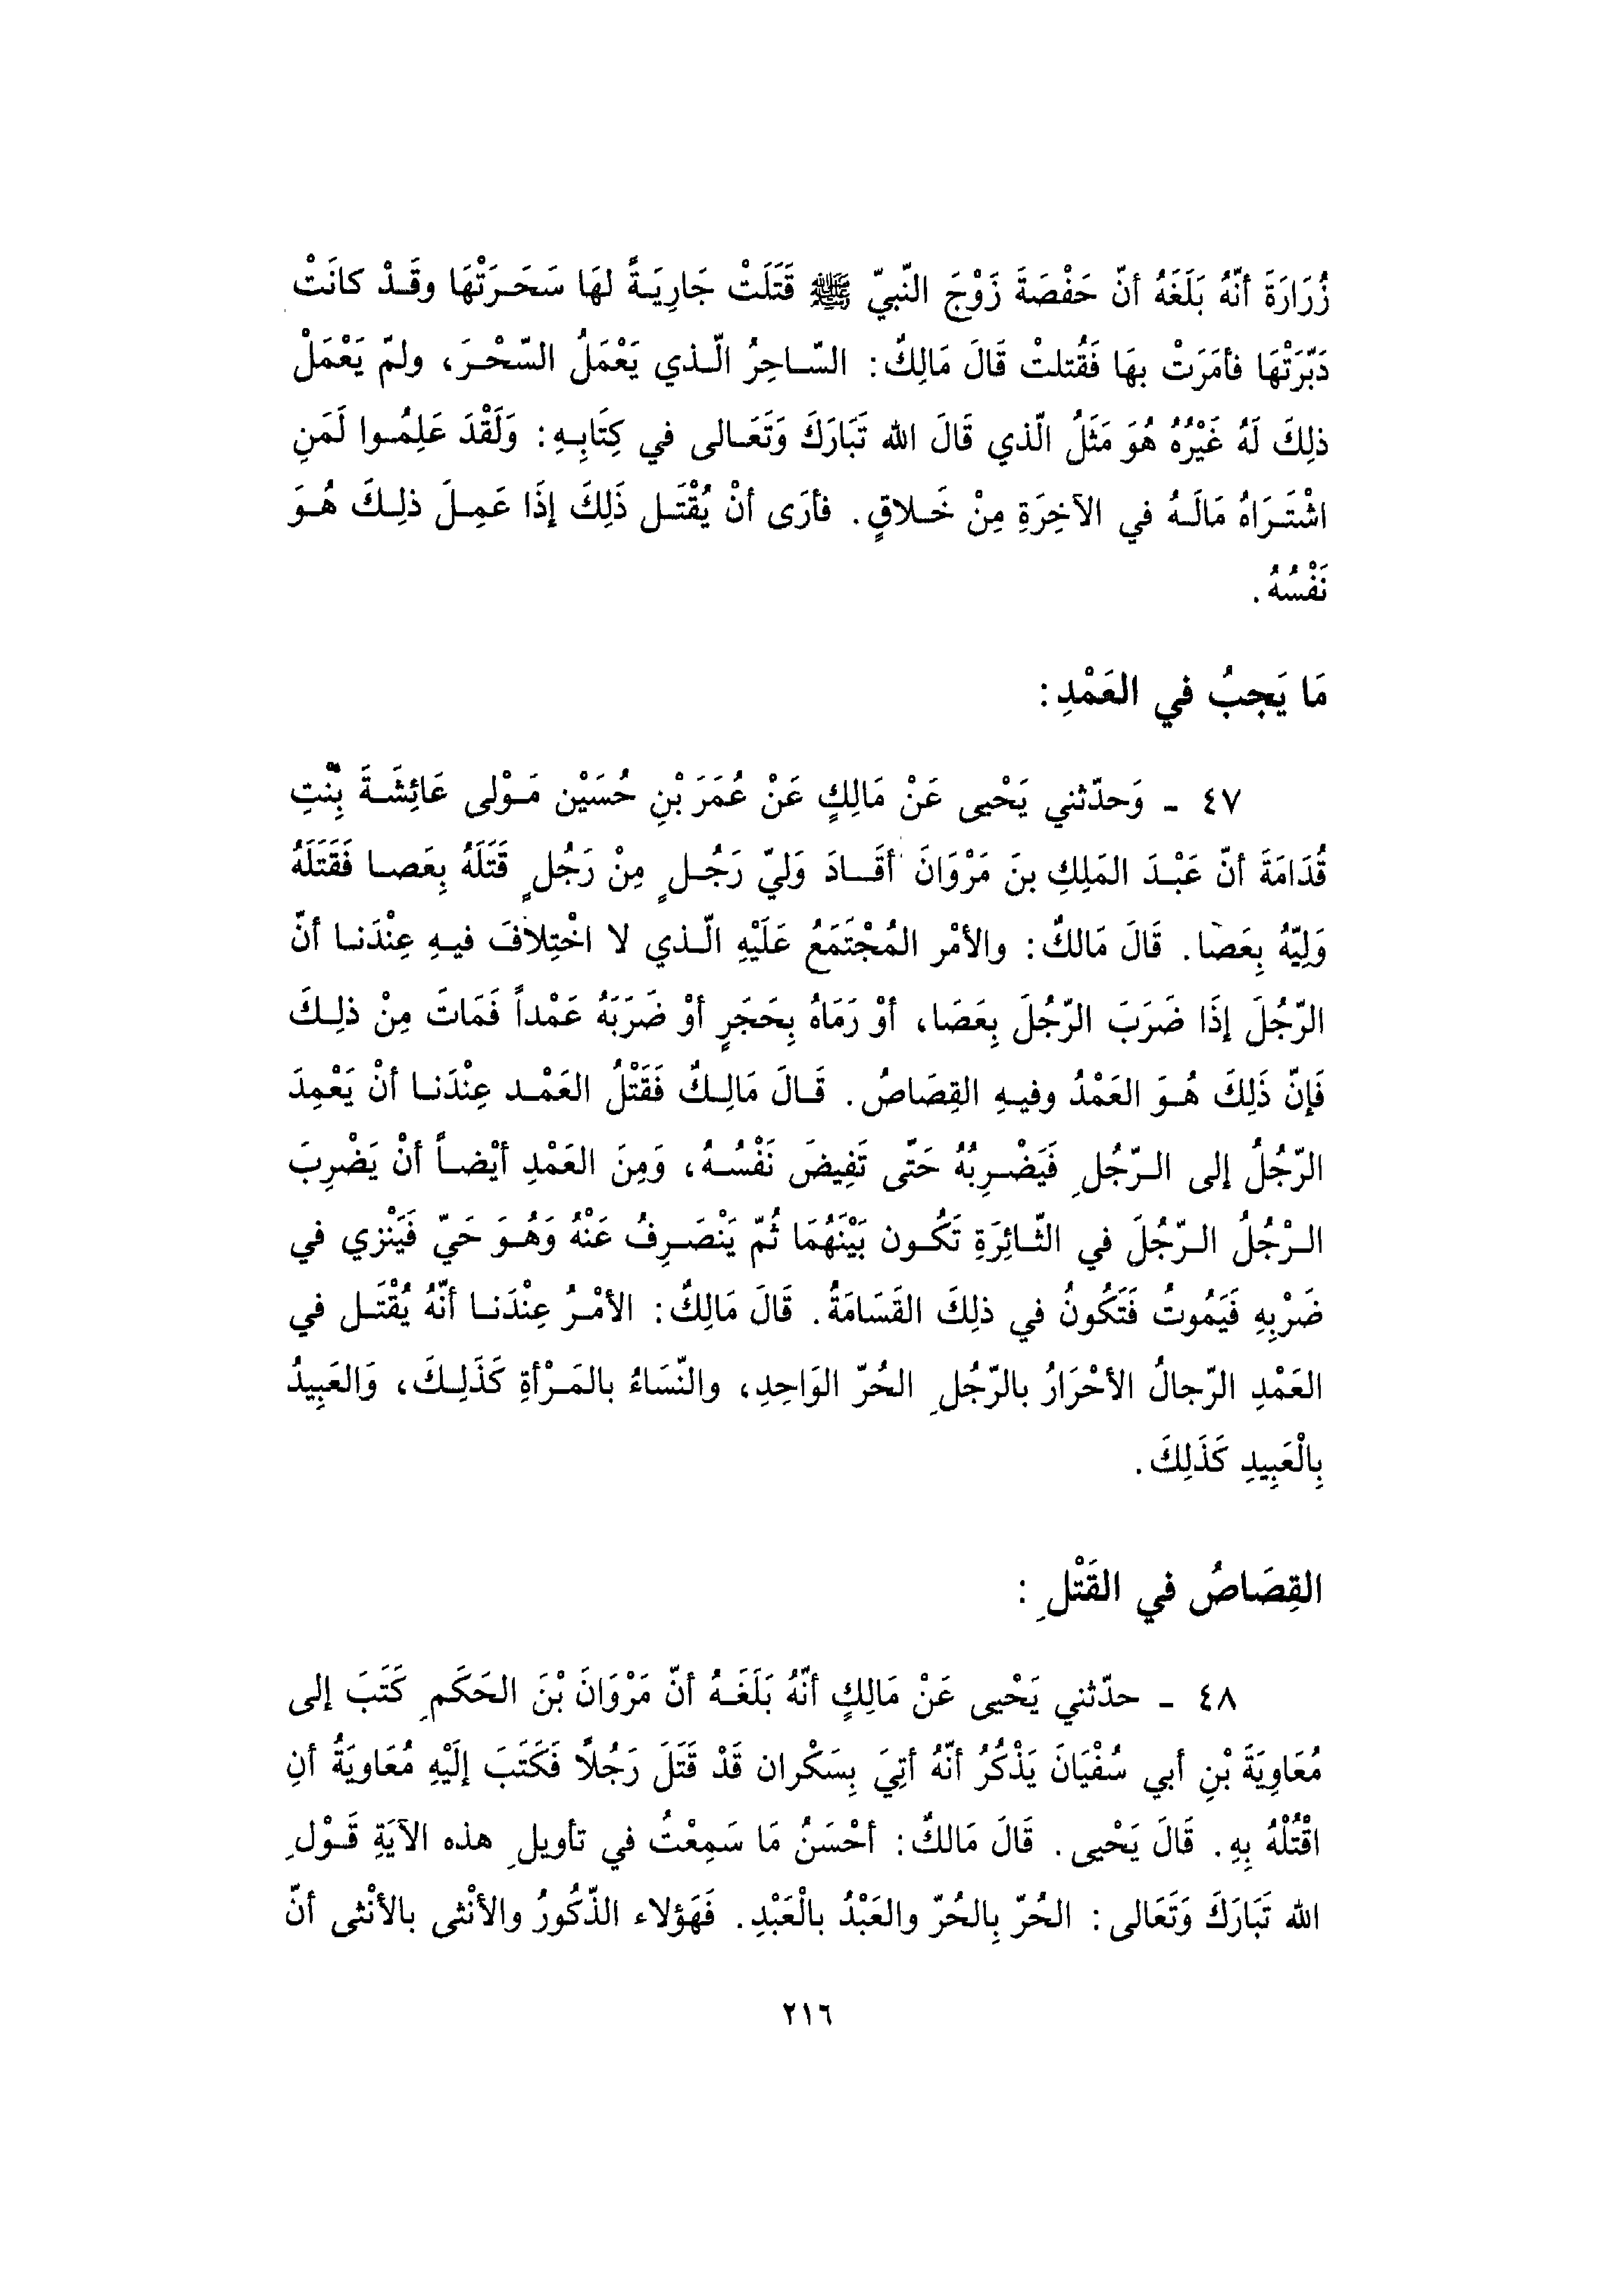 زُرَارَةَ أنّهُ بَلَغَهُ أنّ حَفْصَةَ زَوْجَ النّبيّ ﷺ قَتَلَتْ جَارِيَةً لهَا سَحَرَتْهَا وقَدْ كانَتْ
دَبّرَتْهَا فأمَرَتْ بهَا فَقُتلتْ قَالَ مَالِكٌ: السّاحِرُ الّذي يَعْمَلُ السّحْرَ، ولمّ يَعْمَلْ
ذلِكَ لَهُ غَيْرُهُ هُوَ مَثَلُ الّذي قَالَ الله تَبَارَكَ وَتَعَالى في كِتَابِهِ: وَلَقْدَ عَلِمُوا لَمَنِ
اشْتَرَاهُ مَالَهُ في الآخِرَةِ مِنْ خَلاقٍ. فأرَى أنْ يُقْتَل ذَلِكَ إذَا عَمِلَ ذلِكَ هُوَ
نَفْسُهُ.
مَا يَجِبُ في العَمْدِ:
٤٧ - وَحدّثني يَحْيى عَنْ مَالِكٍ عَنْ عُمَرَ بْنِ حُسَيْن مَوْلى عَائِشَةَ بِنْتِ
قُدَامَةَ أنّ عَبْدَ المَلِكِ بنَ مَرْوَانَ أقَادَ وَليّ رَجُلٍ مِنْ رَجُلٍ قَتَلَهُ بِعَصا فَقَتَلَهُ
وَلِيّهُ بِعَصَا. قَالَ مَالكٌ: والأمْر المُجْتَمَعُ عَلَيْهِ الّذي لا اخْتِلافَ فيهِ عِنْدَنا أنّ
الرّجُلَ إذَا ضَرَبَ الرّجُلَ بِعَصَا، أوْ رَمَاهُ بِحَجَرٍ أوْ ضَرَبَهُ عَمْداً فَمَاتَ مِنْ ذلِكَ
فَإنّ ذَلِكَ هُوَ العَمْدُ وفيهِ القِصَاصُ. قَالَ مَالِكٌ فَقَتْلُ العَمْد عِنْدَنا أنْ يَعْمِدَ
الرّجُلُ إلى الرّجُلِ فَيَضْرِبُهُ حَتّى تَفِيضَ نَفْسُهُ، وَمِنَ العَمْدِ أيْضاً أنْ يَضْرِبَ
الرْجُلُ الرّجُلَ في النّائِرَةِ تَكُون بَيْنَهُمَا ثُمّ يَنْصَرِفُ عَنْهُ وَهُوَ حَيّ فَيَنْزي في
ضَرْبِهِ فَيَمُوتُ فَتَكُونُ في ذلِكَ القَسَامَةُ. قَالَ مَالِكٌ: الأمْرُ عِنْدَنا أنّهُ يُقْتَل في
العَمْدِ الرّجالُ الأحْرَارُ بالرّجُلِ الحُرّ الوَاحِدِ، والنّسَاءُ بالمَرْأةِ كَذَلِكَ، وَالعَبِيدُ
بِالْعَبِيدِ كَذَلِكَ.
القِصَاصُ في القَتْلِ:
٤٨ - حدّثني يَحْيى عَنْ مَالِكٍ أنّهُ بَلَغَهُ أنّ مَرْوَانَ بْنَ الحَكَمِ كَتَبَ إلى
مُعَاوِيَةَ بْنِ أبي سُفْيَانَ يَذْكُرُ أنّهُ أتِيَ بِسَكْران قَدْ قَتَلَ رَجُلاً فَكَتَبَ إلَيْهِ مُعَاويَةُ أنِ
اقْتُلْهُ بِهِ. قَالَ يَحْيى. قَالَ مَالكٌ: أحْسَنُ مَا سَمِعْتُ في تأويلِ هذه الآيَةِ قَوْلِ
الله تَبَارَكَ وَتَعَالى: الحُرّ بِالحُرّ والعَبْدُ بالْعَبْدِ. فَهَؤلاء الذّكُورُ والأنْثى بالأنْثى أنّ
٢١٦